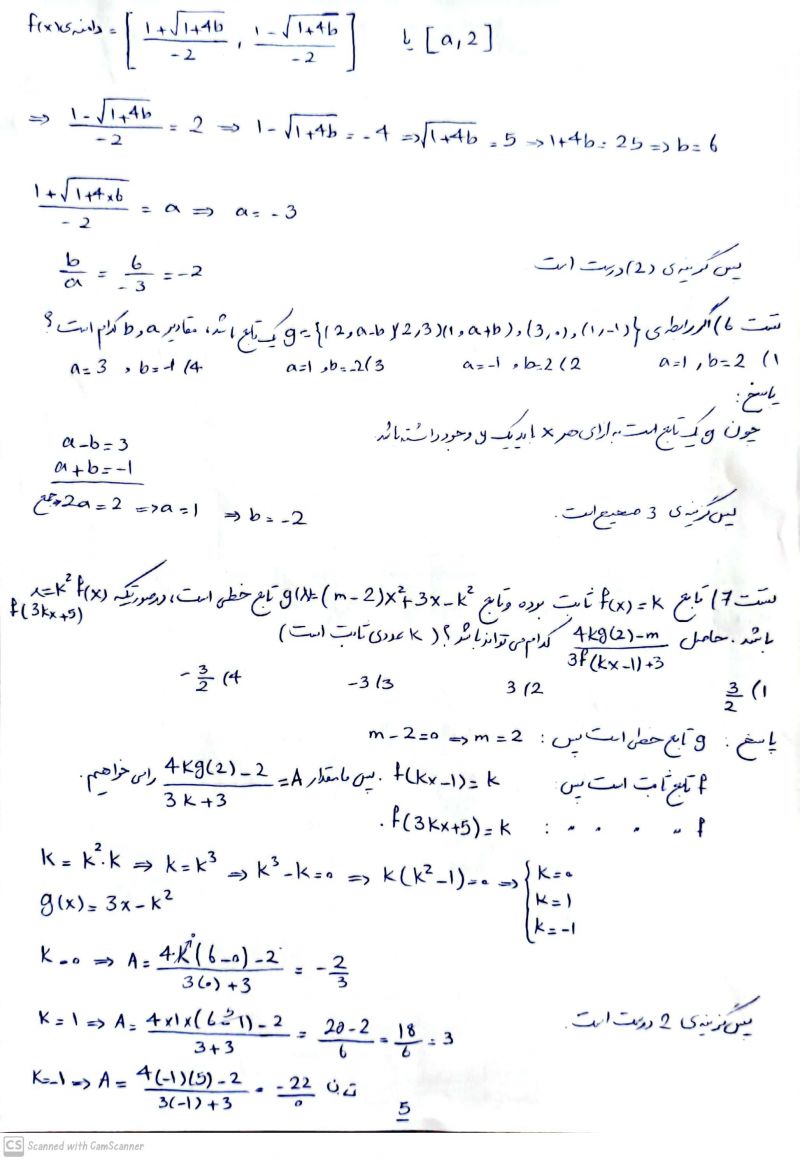 دامنه‌ی f(x) = [ (1+√(1+4b))/-2 , (1-√(1+4b))/-2 ] یا [a, 2]
⇒ (1-√(1+4b))/-2 = 2 ⇒ 1-√(1+4b) = -4 ⇒ √(1+4b) = 5 ⇒ 1+4b = 25 ⇒ b = 6
(1+√(1+4×6))/-2 = a ⇒ a = -3
b/a = 6/-3 = -2
پس گزینه‌ی (2) درست است
تست 6) اگر رابطه‌ی g={(2, a-b)(2,3)(1, a+b), (3,0), (1,-1)} یک تابع باشد، مقادیر a و b کدام است؟
1) a=1, b=2 2) a=-1, b=2 3) a=1, b=-2 4) a=3, b=-1
پاسخ:
چون g یک تابع است به ازای هر x باید یک y وجود داشته باشد.
a-b=3
a+b=-1
جمع ⇒ 2a=2 ⇒ a=1 ⇒ b=-2
پس گزینه‌ی 3 صحیح است.
تست 7) تابع f(x)=k ثابت بوده و تابع g(x)=(m-2)x²+3x-k² تابع خطی است، درصورتیکه f(x)=k² f(3kx+5)
باشد. حاصل (4kg(2)-m)/(3f(kx-1)+3) کدام می تواند باشد؟ (k عددی ثابت است)
1) 3/2 2) 3 3) -3 4) -3/2
پاسخ: g تابع خطی است پس: m-2=0 ⇒ m=2
f تابع ثابت است پس: f(kx-1)=k. پس ما مقدار A=(4kg(2)-2)/(3k+3) را می خواهیم.
f " " " " : f(3kx+5)=k.
k=k²·k ⇒ k=k³ ⇒ k³-k=0 ⇒ k(k²-1)=0 ⇒ { k=0 k=1 k=-1
g(x)=3x-k²
k=0 ⇒ A=(4k(6-0)-2)/(3(0)+3) = -2/3
k=1 ⇒ A=(4×1×(6-1)-2)/(3+3) = (20-2)/6 = 18/6 = 3
پس گزینه‌ی 2 درست است.
k=-1 ⇒ A=(4(-1)(5)-2)/(3(-1)+3) = -22/0 ت.ن
5
CS Scanned with CamScanner